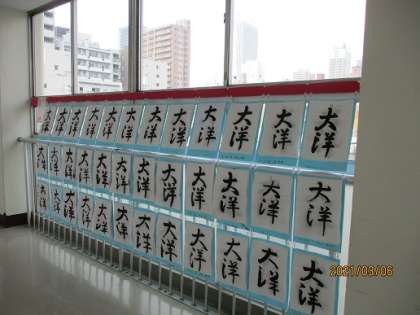 大洋 大洋 大洋 大洋 大洋 大洋 大洋 大洋 大洋 大洋 大洋 大洋
大洋 大洋 大洋 大洋 大洋 大洋 大洋 大洋 大洋 大洋 大洋 大洋
大洋 大洋 大洋 大洋 大洋 大洋 大洋 大洋 大洋 大洋 大洋 大洋
2021/03/06